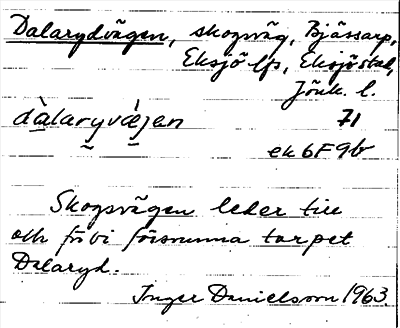 Dalarydvägen, skogsväg, Bjässarp,
Eksjö lfs, Eksjö stad,
Jönk. l.
dàlaryvä́jen 71
ek 6F9b
Skogsvägen leder till
och förbi försvunna torpet
Dalaryd.
Inger Danielsson 1963.